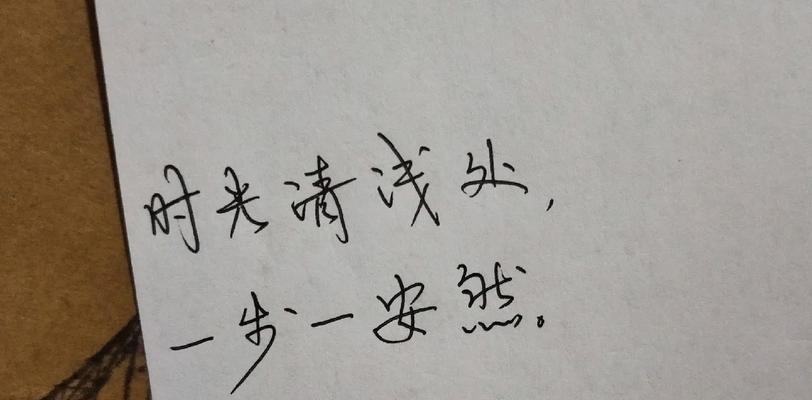 时光清浅处，
一步一安然。